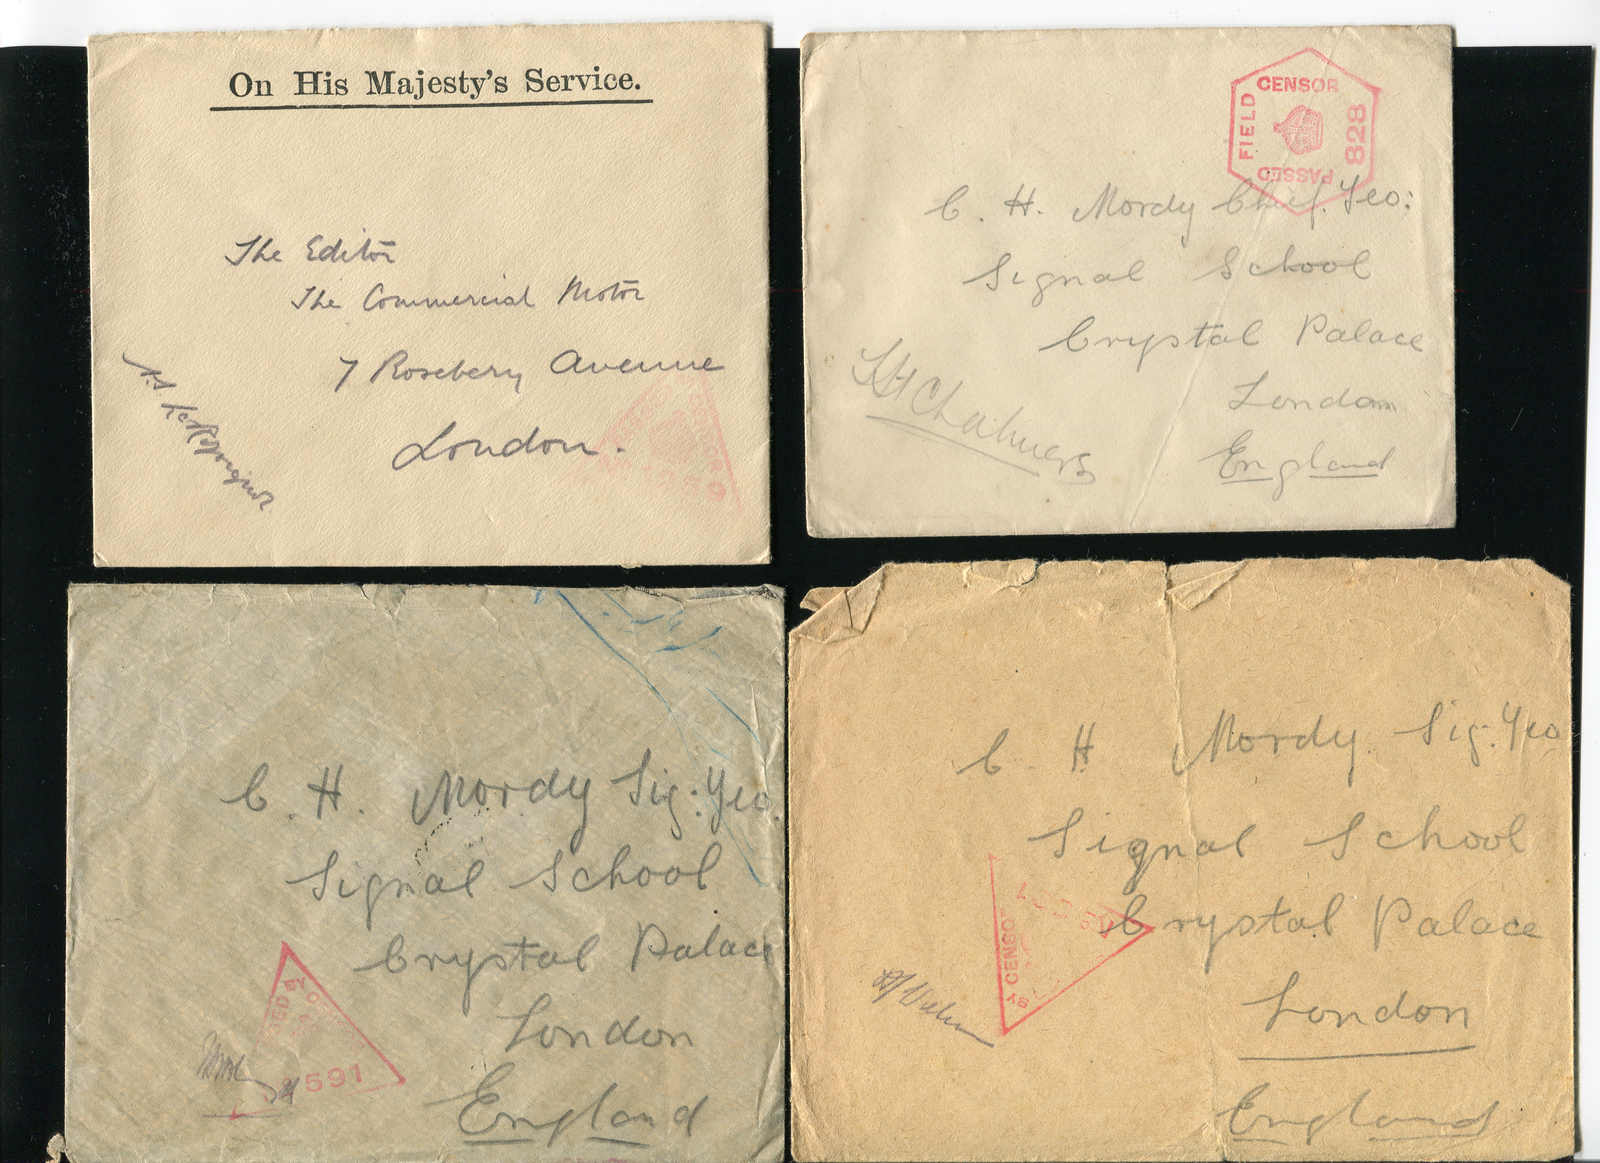 On His Majesty's Service.
The Editor
The Commercial Motor
7 Rosebery Avenue
London.
CENSOR
FIELD
828
PASSED
C. H. Mordy Chief. Yeo:
Signal School
Crystal Palace
London
England
Chalmers
C. H. Mordy Sig: Yeo.
Signal School
Crystal Palace
London
England
BY
591
C H Mordy. Sig. Yeo
Signal School
Crystal Palace
London
England
BY CENSOR